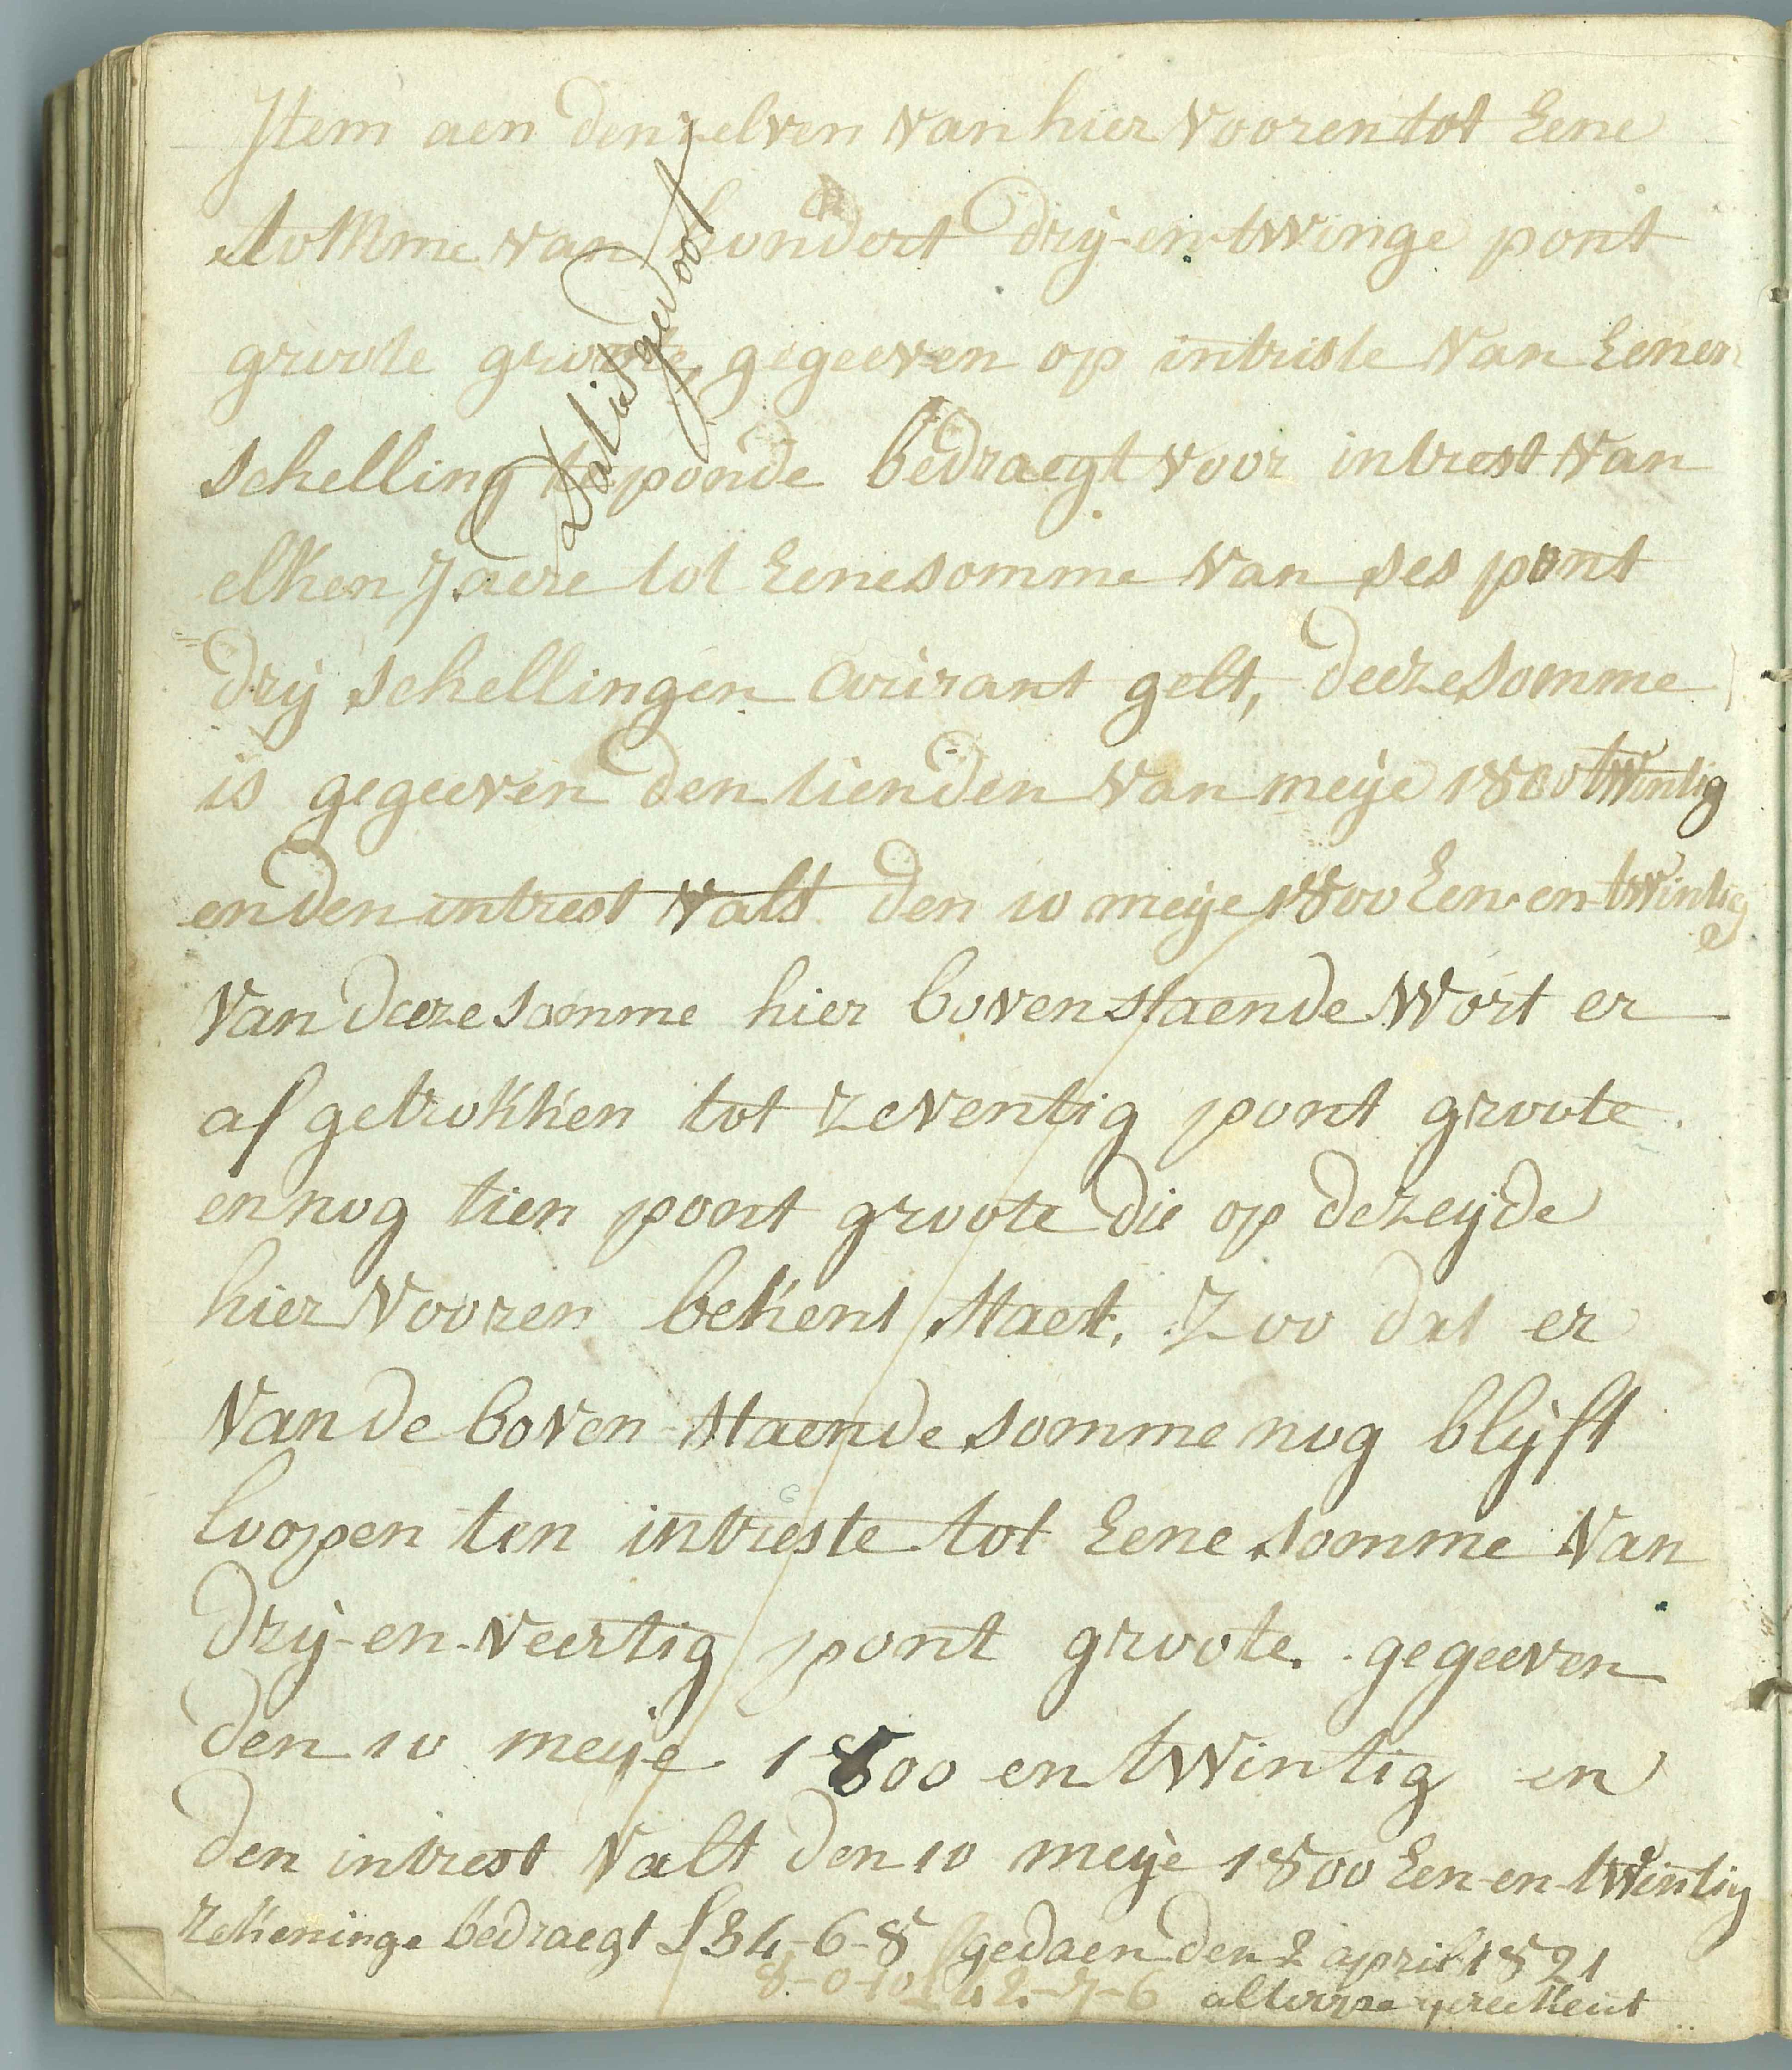 Item aen denzelven van hier vooren tot Eene
somme van hondert drij-en-twinge pont
groote groote, gegeeven op intriste van Eenen
schelling te ponde bedraegt voor intrest van
elken Jaere tot Eene somme van ses pont
drij schellingen courant gelt, deeze somme
is gegeeven den tienden van meije 1800 twintig
en den intrest valt den 10 meije 1800 Een-en-twintig
van deeze somme hier bovenstaende wort er
af getrokken tot zeventig pont groote.
en nog tien pont groote die op dezeijde
hier vooren bekent staet. Zoo dat er
van de boven-staende somme nog blijft
loopen ten intreste tot Eene somme van
drij-en-veertig pont groote. gegeeven
den 10 meije 1800 en twintig en
den intrest valt den 10 meije 1800 Een-en-twintig
rekeninge bedraegt £34-6-8 gedaen den 2 april 1821
8-0-10 £42-7-6 gereekent
dat is gedoot